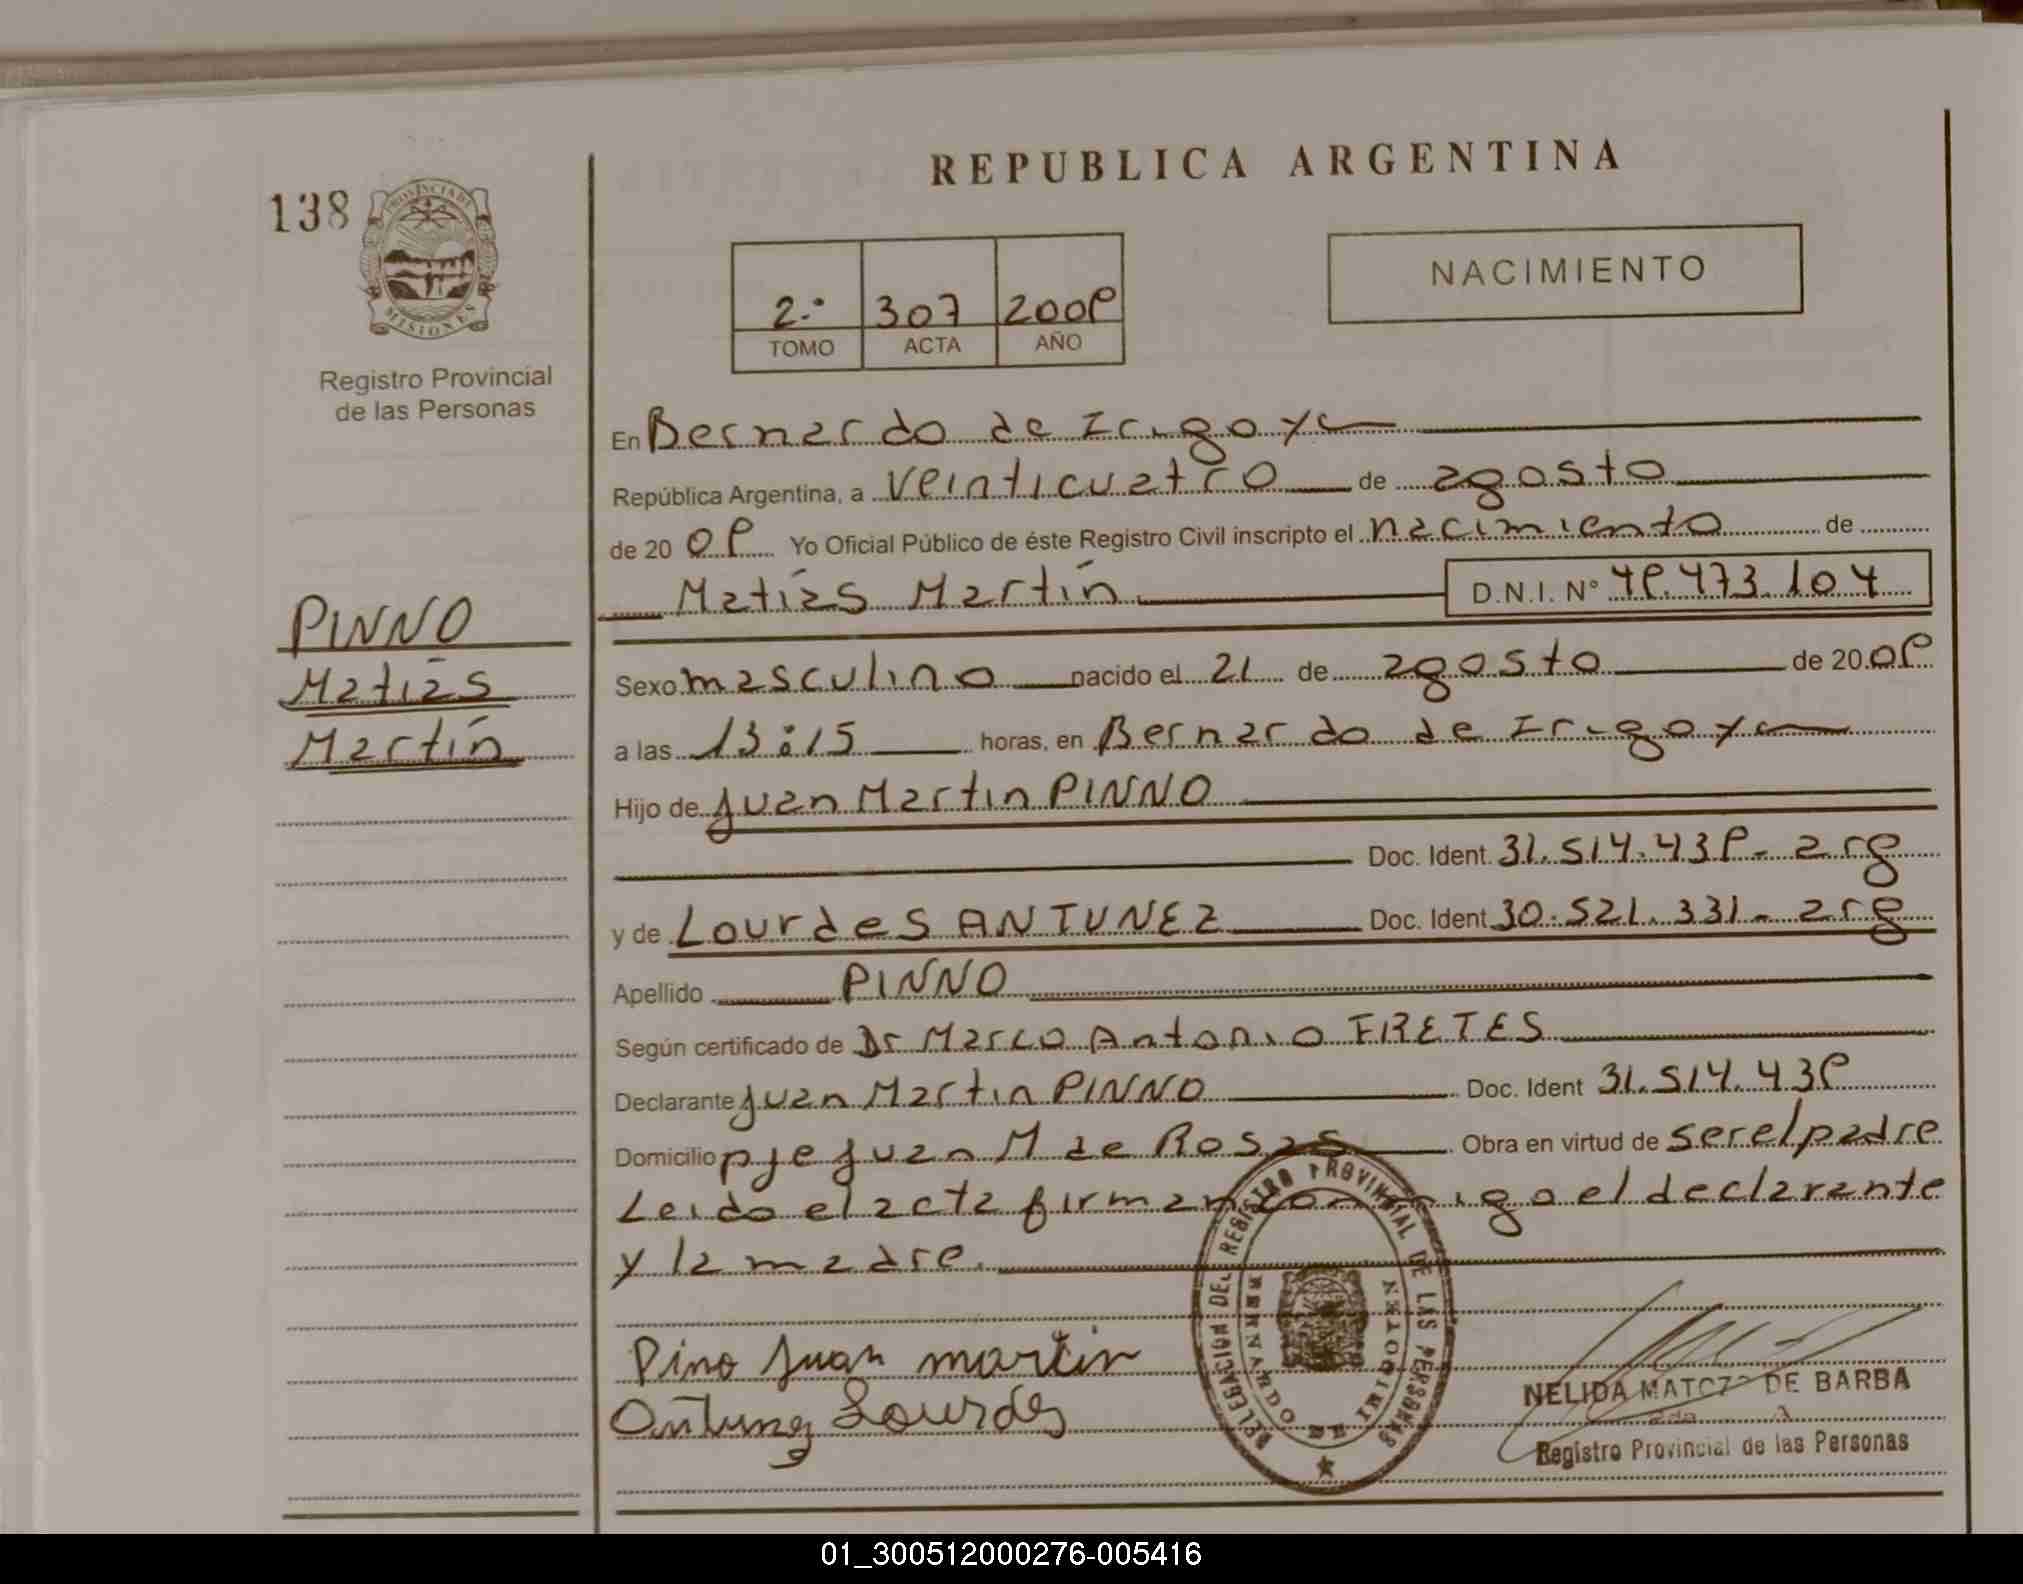 REPUBLICA ARGENTINA
138
PROVINCIA DE MISIONES
Registro Provincial
de las Personas
2.° 307 2009
TOMO ACTA AÑO
NACIMIENTO
En Bernardo de Irigoyen
República Argentina, a veinticuatro de agosto
de 20 09 Yo Oficial Público de éste Registro Civil inscripto el nacimiento de
Matías Martín D.N.I. N° 49.473.104
PINNO
Matías
Martín
Sexo masculino nacido el 21 de agosto de 20 09
a las 13:15 horas, en Bernardo de Irigoyen
Hijo de Juan Martin PINNO
Doc. Ident. 31.514.439- arg
y de Lourdes ANTUNEZ Doc. Ident. 30.521.331- arg
Apellido PINNO
Según certificado de Dr Marco Antonio FRETES
Declarante Juan Martin PINNO Doc. Ident 31.514.439
Domicilio pje Juan M de Rosas Obra en virtud de ser el padre
Leido el acta firman conmigo el declarante
y la madre.
DELEGACION DEL REGISTRO PROVINCIAL DE LAS PERSONAS
BERNARDO DE IRIGOYEN
Pino Juan martin
Antunez Lourdes
NELIDA MATOZO DE BARBA
Registro Provincial de las Personas
01_300512000276-005416